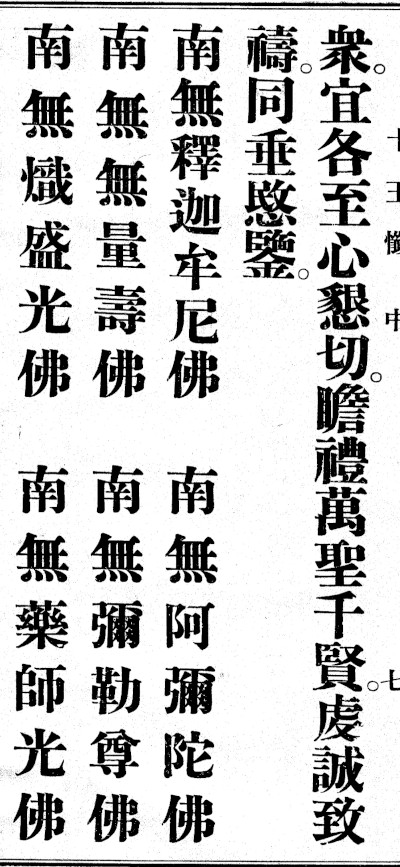 十王懺中 七
衆。宜各至心懇切。瞻禮萬聖千賢。虔誠致
禱。同垂愍鑒。
南無釋迦牟尼佛 南無阿彌陀佛
南無無量壽佛 南無彌勒尊佛
南無熾盛光佛 南無藥師光佛